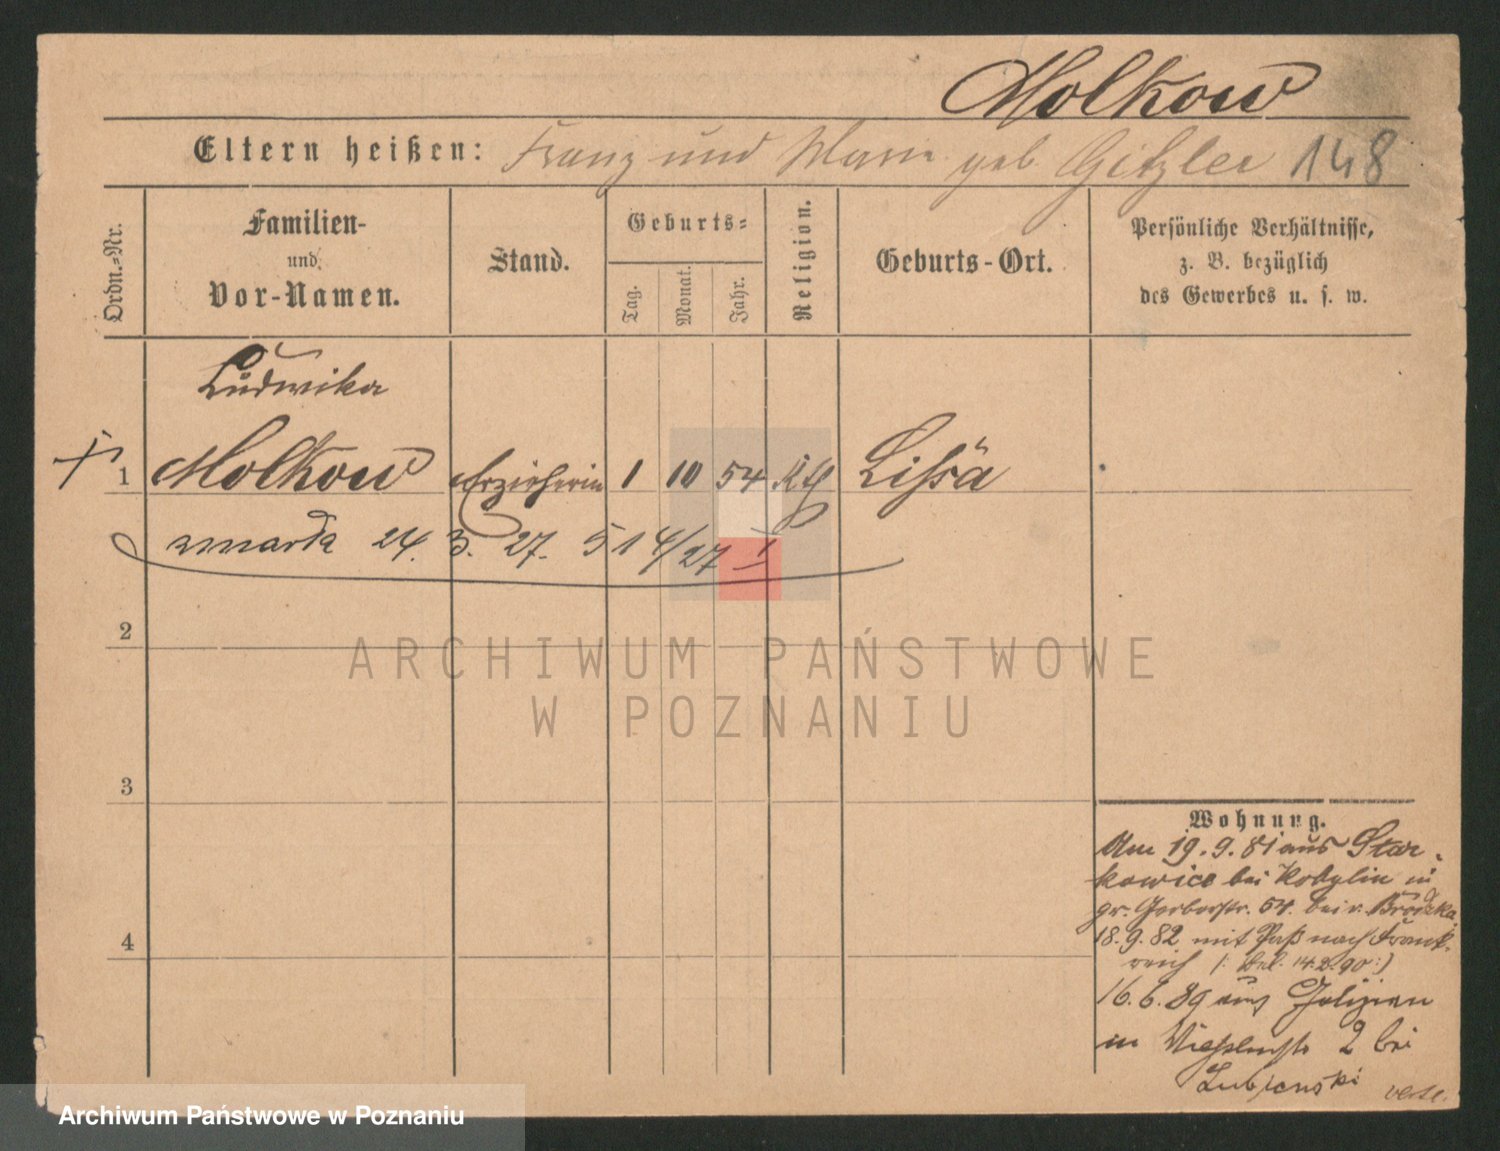 Molkow
Eltern heißen: Franz und Marie geb. Gitzler 148
Ordn.-Nr.
Familien-
und
Vor-Namen.
Stand.
Geburts-
Tag.
Monat.
Jahr.
Religion.
Geburts-Ort.
Persönliche Verhältnisse,
z. B. bezüglich
des Gewerbes u. s. w.
Ludwika
1 Molkow Erzieherin 1 10 54 Kth Lissa
zmarła 24. 3. 27. 514/27 I
2
3
4
Wohnung.
Am 19.9.81 aus Star-
kowice bei Kobylin in
gr. Gerberstr. 54. bei v. Brodzka.
18.9.82 mit Paß nach Frank-
reich 14.2.90:)
16.6.89 aus Galizien
in 2 bei
Lubienski
verte.
ARCHIWUM PAŃSTWOWE
W POZNANIU
Archiwum Państwowe w Poznaniu